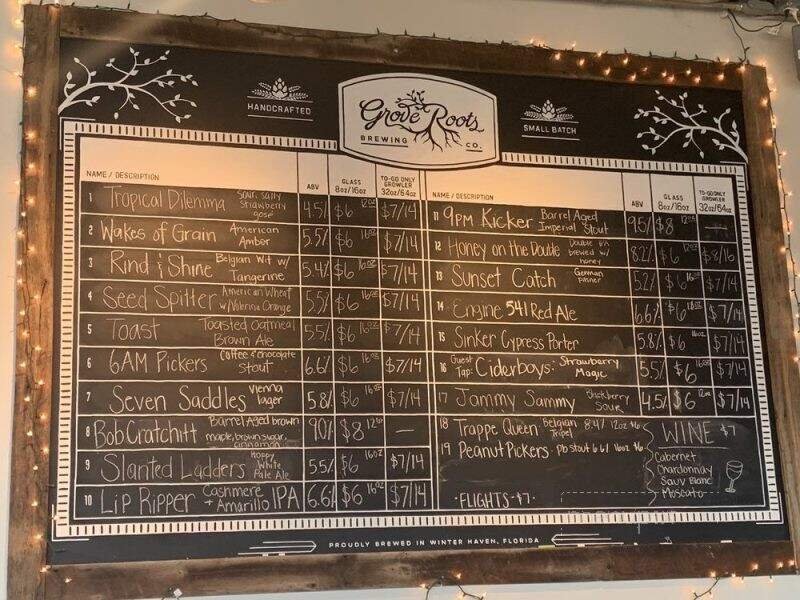 HANDCRAFTED
Grove Roots
BREWING CO.
SMALL BATCH
NAME / DESCRIPTION ABV GLASS 8oz/16oz TO-GO ONLY GROWLER 32oz/64oz
1 Tropical Dilemma Sour, salty strawberry gose 4.5% $6 12oz $7/14
2 Wakes of Grain American Amber 5.5% $6 16oz $7/14
3 Rind & Shine Belgian Wit w/ Tangerine 5.4% $6 16oz $7/14
4 Seed Spitter American Wheat w/ Valencia Orange 5.5% $6 16oz $7/14
5 Toast Toasted Oatmeal Brown Ale 5.5% $6 16oz $7/14
6 6AM Pickers Coffee & chocolate stout 6.6% $6 16oz $7/14
7 Seven Saddles Vienna lager 5.8% $6 16oz $7/14
8 Bob Cratchitt Barrel Aged brown maple, brown sugar, cinnamon 9.0% $8 12oz —
9 Slanted Ladders Hoppy White Pale Ale 5.5% $6 16oz $7/14
10 Lip Ripper Cashmere + Amarillo IPA 6.6% $6 16oz $7/14
NAME / DESCRIPTION ABV GLASS 8oz/16oz TO-GO ONLY GROWLER 32oz/64oz
11 9PM Kicker Barrel Aged Imperial Stout 9.5% $8 12oz —
12 Honey on the Double Double IPA brewed w/ honey 8.2% $6 12oz $8/16
13 Sunset Catch German pilsner 5.2% $6 16oz $7/14
14 Engine 541 Red Ale 6.6% $6 16oz $7/14
15 Sinker Cypress Porter 5.8% $6 16oz $7/14
16 Guest Tap: Ciderboys: Strawberry Magic 5.5% $6 16oz $7/14
17 Jammy Sammy Blackberry Sour 4.5% $6 12oz $7/14
18 Trappe Queen Belgian Tripel 8.4% 12oz $6
19 Peanut Pickers · pb stout 6.6% 16oz $6
·FLIGHTS-$7·
WINE $7
Cabernet
Chardonnay
Sauv Blanc
Moscato
PROUDLY BREWED IN WINTER HAVEN, FLORIDA